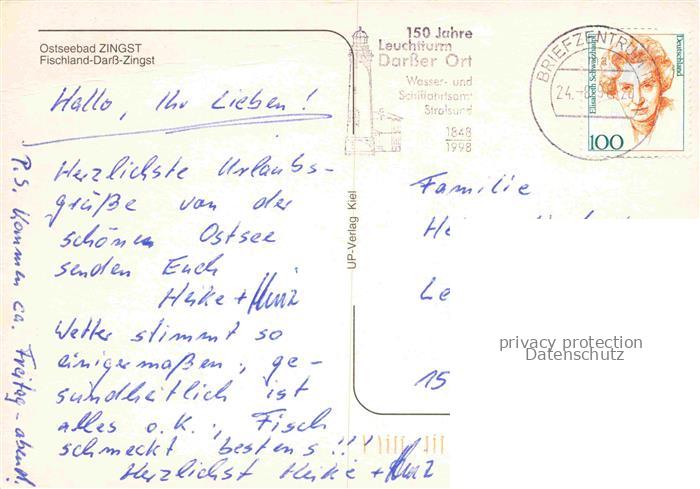 Ostseebad ZINGST
Fischland-Darß-Zingst
Hallo, Ihr Lieben!
Herzlichste Urlaubs-
grüße von der
schönen Ostsee
senden Euch
Heike +
Wetter stimmt so
einigermaßen, ge-
sundheitlich ist
alles o.k., Fisch
schmeckt bestens!!!
Herzlichst Heike +
P.S. Kommen ca. Freitag-abend!
UP-Verlag Kiel
150 Jahre
Leuchtturm
Darßer Ort
Wasser- und
Schiffahrtsamt
Stralsund
1848
1998
BRIEFZENTRUM
24.-8.
Deutschland
Elisabeth Schwarzhaupt
100
Familie
He
Le
15
privacy protection
Datenschutz